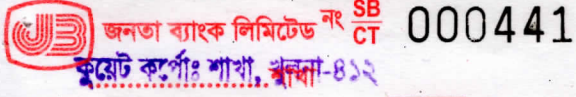 JB জনতা ব্যাংক লিমিটেড নং SB/CT 000441
কুয়েট কর্পোঃ শাখা, খুলনা-৪১২